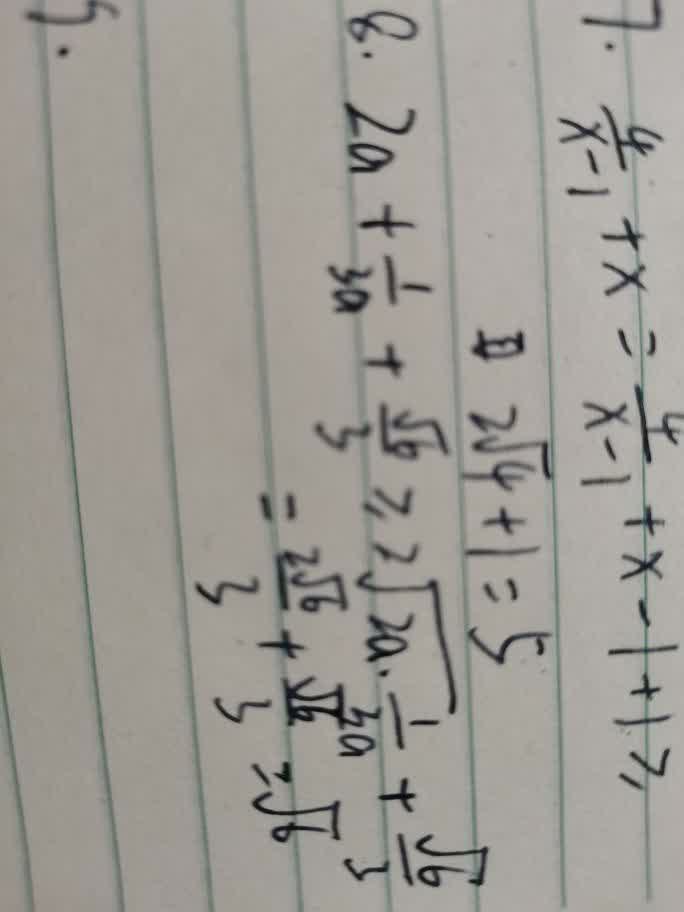 7. 4/(x-1) + x = 4/(x-1) + x - 1 + 1 ≥
2√4 + 1 = 5
8. 2a + 1/(3a) + √6/3 ≥ 2√(2a · 1/(3a)) + √6/3
= 2√6/3 + √6/3 = √6